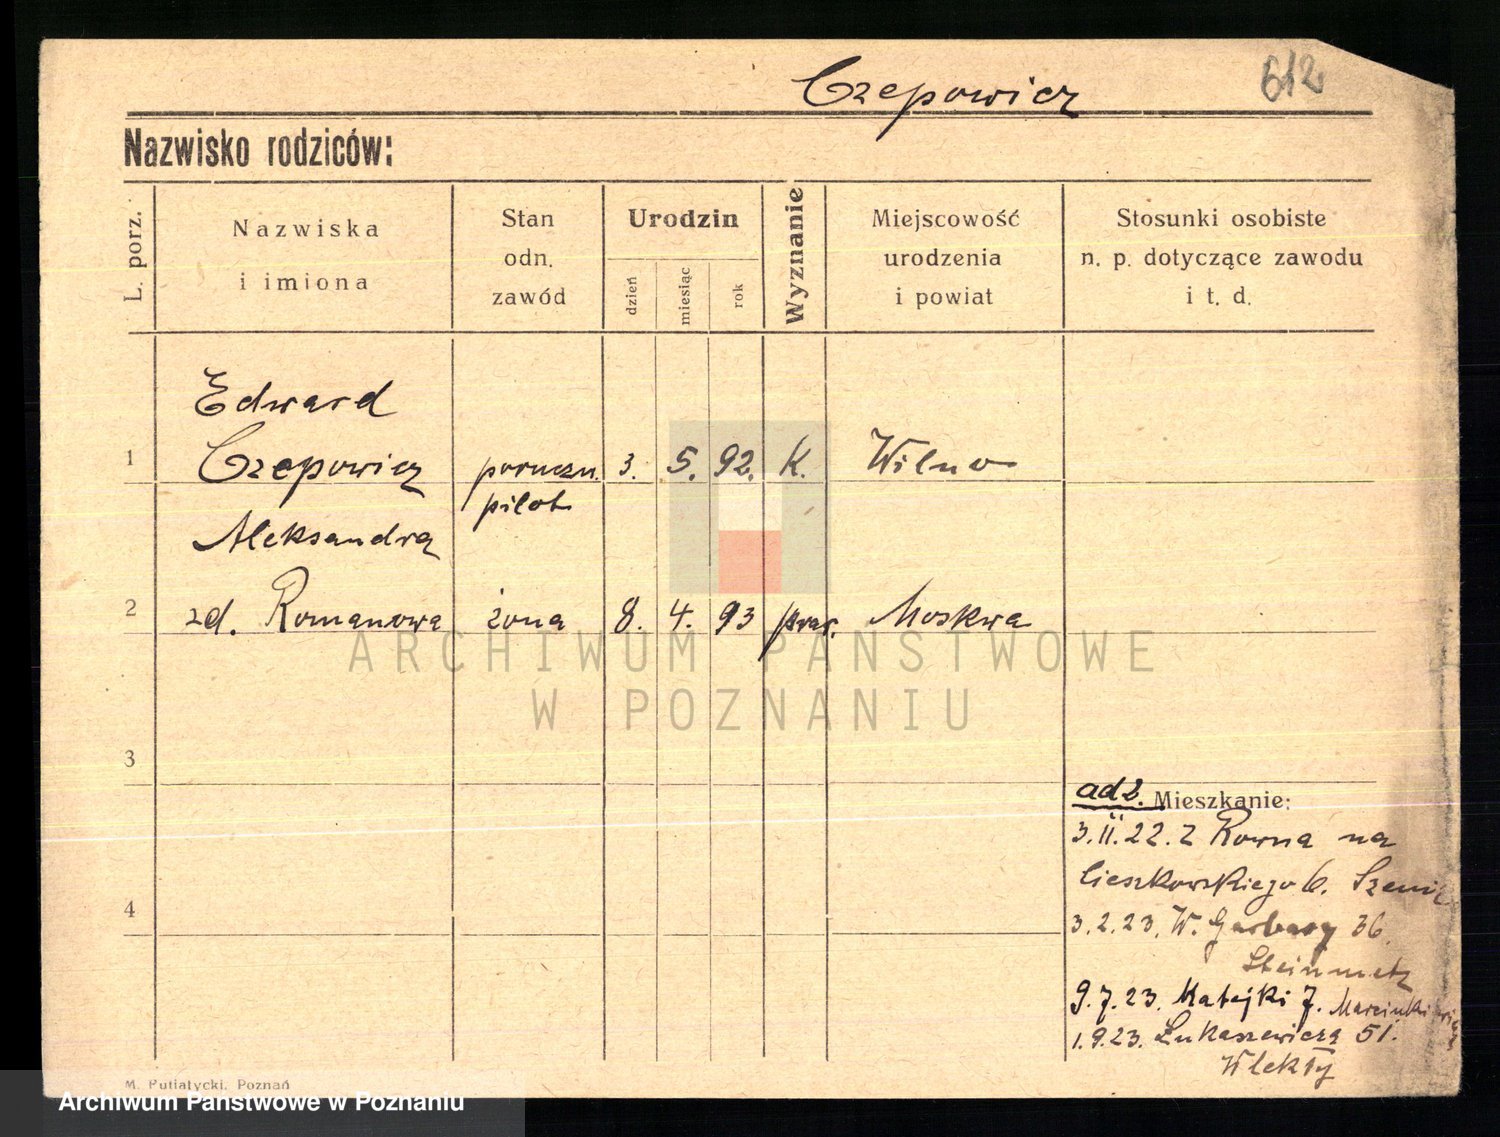 Czepowicz
612
Nazwisko rodziców:
L. porz.
Nazwiska
i imiona
Stan
odn.
zawód
Urodzin
dzień
miesiąc
rok
Wyznanie
Miejscowość
urodzenia
i powiat
Stosunki osobiste
n. p. dotyczące zawodu
i t. d.
Edward
1 Czepowicz poruczn. 3. 5. 92. K. Wilno
pilot
Aleksandra
2 zd. Romanowa żona 8. 4. 93 praw. Moskwa
3
4
ad 2. Mieszkanie:
3.II.22. z Rowna na
Cieszkowskiego 6.
3.2.23. W. Garbary 36
Steinmetz
9.7.23. Matejki 7.
1.9.23. Łukaszewicza 51.
Wlekły
M. Putiatycki, Poznań
ARCHIWUM PAŃSTWOWE
W POZNANIU
Archiwum Państwowe w Poznaniu